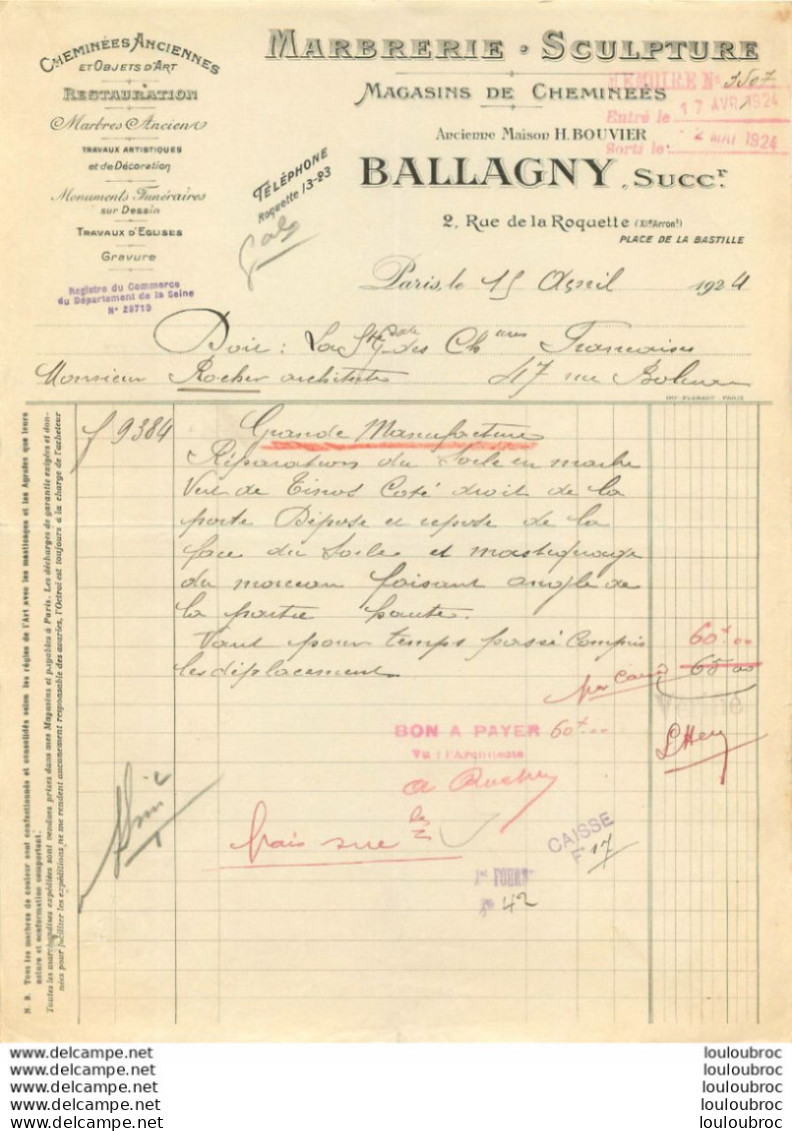 CHEMINÉES ANCIENNES
ET OBJETS D'ART
RESTAURATION
Marbres Anciens
TRAVAUX ARTISTIQUES
et de Décoration
Monuments Funéraires
sur Dessin
TRAVAUX D'EGLISES
Gravure
Registre du Commerce
du Département de la Seine
N° 29719
TÉLÉPHONE
Roquette 13-93
MARBRERIE • SCULPTURE
MAGASINS DE CHEMINÉES
MEMOIRE N°
Entré le 17 AVR 1924
Sorti le 2 MAI 1924
Ancienne Maison H. BOUVIER
BALLAGNY, SUCCr.
2, Rue de la Roquette (XIe Arront)
PLACE DE LA BASTILLE
Paris, le 15 Avril 1924
Doit : La Sté Gale des Ch Françaises
Monsieur Rocher architecte 47 rue
IMP. PARIS
f 9384 Grande Manufacture
Réparations du Socle en marbre
Vert de Tinos Coté droit de la
porte Dépose et repose de la
face du Socle et masticage
du morceau faisant angle de
la partie haute.
Vaut pour temps passé Compris 60f 00
les déplacements 65 00
BON A PAYER 60f 00
Vu : l'Architecte
frais sur
CAISSE
F 17
Jal FOURS
fo 42
N. B. Tous les marbres de couleur sont confectionnés et consolidés selon les règles de l'Art avec les masticages et les Agrafes que leurs
nature et conformation comportent.
Toutes les marchandises expédiées sont vendues prises dans mes Magasins et payables à Paris. Les décharges de garantie exigées et don-
nées pour faciliter les expéditions ne me rendent aucunement responsable des avaries, l'Octroi est toujours à la charge de l'acheteur
www.delcampe.net louloubroc
www.delcampe.net louloubroc
www.delcampe.net louloubroc
www.delcampe.net louloubroc
www.delcampe.net louloubroc